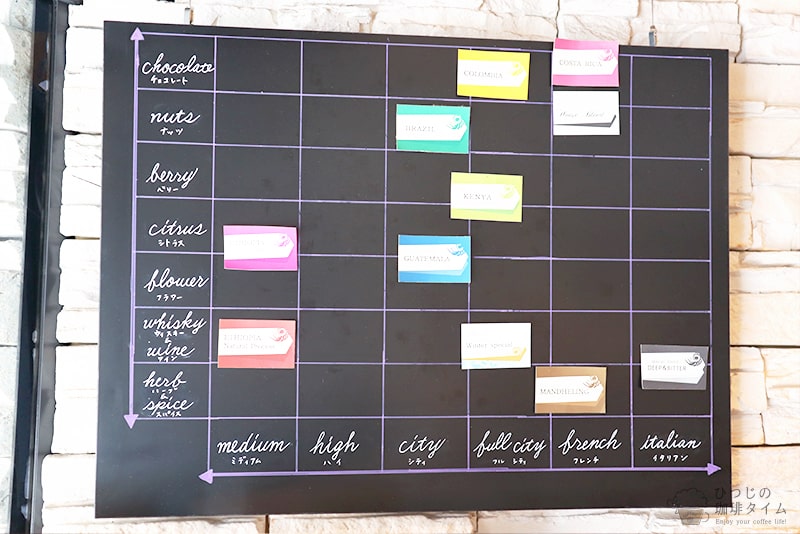 chocolate
チョコレート
COLOMBIA
COSTA RICA
nuts
ナッツ
BRAZIL
House Blend
berry
ベリー
KENYA
citrus
シトラス
GUATEMALA
flower
フラワー
whisky
ウィスキー
&
wine
ワイン
ETHIOPIA
Natural Process
Winter special
DEEP&BITTER
herb
ハーブ
&
spice
スパイス
MANDHELING
medium
ミディアム
high
ハイ
city
シティ
full city
フル シティ
french
フレンチ
italian
イタリアン
ひつじの
珈琲タイム
Enjoy your coffee life!